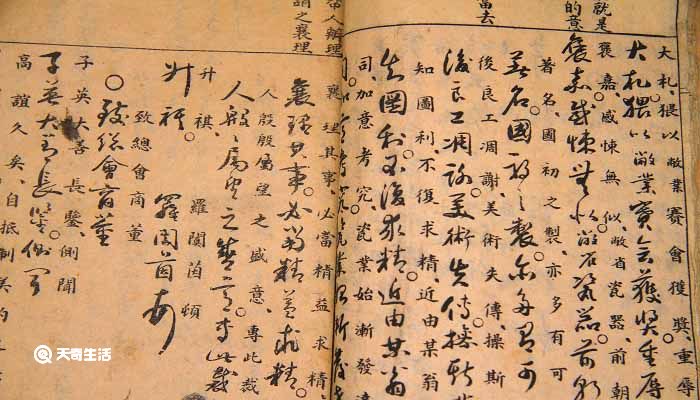 就是
的意
當去
大札。猥以敝業賽會獲獎。重辱
大札。猥以敝業賽會獲獎重辱
褒嘉。感悚無似。敝省瓷器。前朝
褒嘉感悚無似敝省瓷器前朝
著名。國初之製。亦多有可
著名國初之製。亦多有可
後良工凋謝。美術失傳。操斯
後良工凋謝美術失傳操斯
知圖利。不復求精。近由某翁
知圖利不復求精近由某翁
司。加意考究。瓷業始漸發達
帝人辦理
謂之襄理
襄理其事。必當精益求精
襄理其事。必當精益求精
人殷殷屬望之盛意。專此裁
人殷殷屬望之盛意專此裁
升祺。 羅閬茵頓
升祺 羅閬茵頓
致總會商董
○致總會商董
子英大善長鑒側聞
子英大善長鑒側聞
高誼久矣。自抵制美約
天奇生活